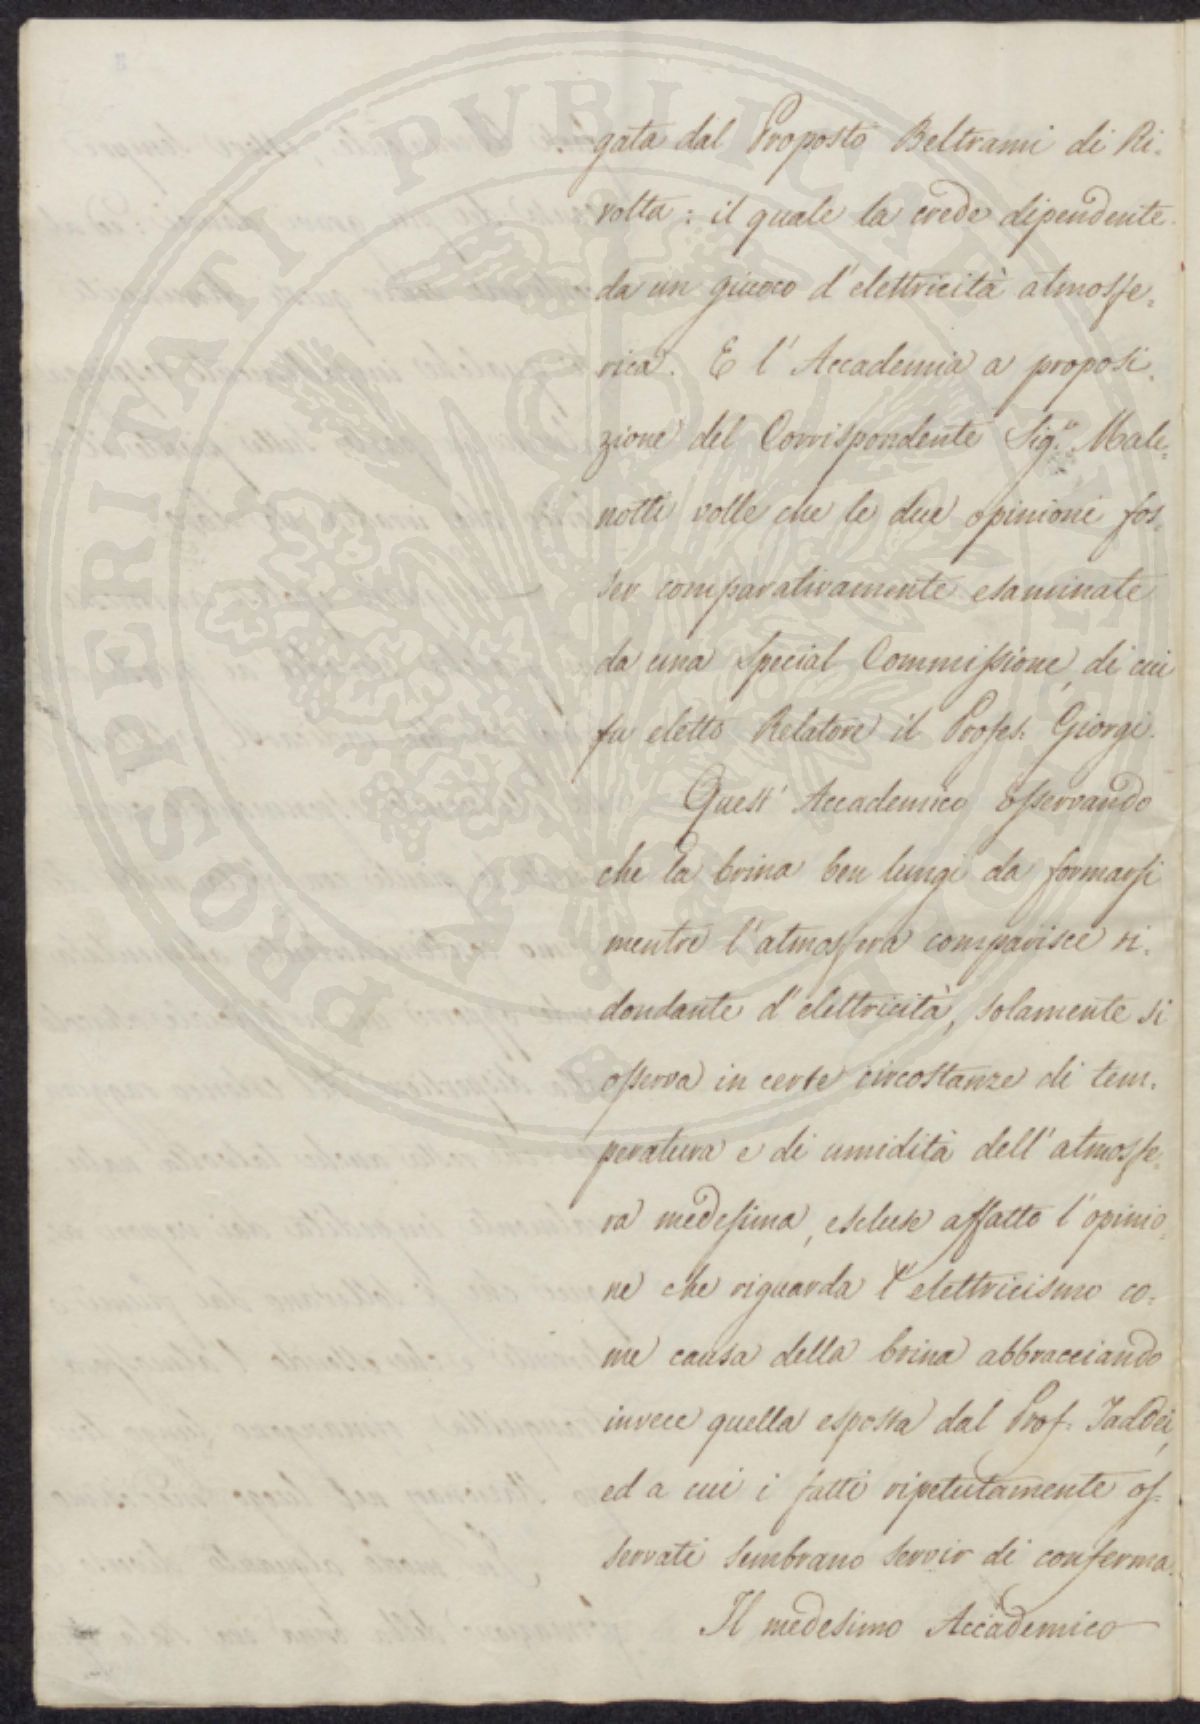 PROSPERITATI PUBLICAE AUGENDAE
gata dal Proposto Beltrami di Ri-
volta: il quale la crede dipendente
da un giuoco d'elettricità atmosfe-
rica. E l'Accademia a proposi-
zione del Corrispondente Sig.r Male-
notti volle che le due opinioni fos-
ser comparativamente esaminate
da una special Commissione, di cui
fu eletto Relatore il Profes. Giorgi.
Quest'Accademico osservando
che la brina ben lungi da formarsi
mentre l'atmosfera comparisce ri-
dondante d'elettricità, solamente si
osserva in certe circostanze di tem-
peratura e di umidità dell'atmosfe-
ra medesima, escluse affatto l'opinio-
ne che riguarda l'elettricismo co-
me causa della brina abbracciando
invece quella esposta dal Prof. Taddei,
ed a cui i fatti ripetutamente os-
servati sembrano servir di conferma.
Il medesimo Accademico